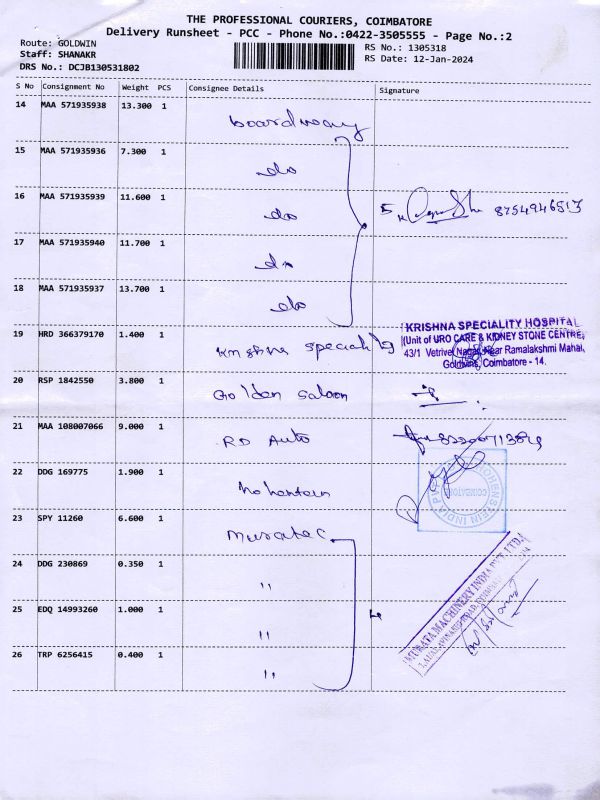 THE PROFESSIONAL COURIERS, COIMBATORE
Delivery Runsheet - PCC - Phone No.:0422-3505555 - Page No.:2
Route: GOLDWIN
Staff: SHANAKR
DRS No.: DCJB130531802
RS No.: 1305318
RS Date: 12-Jan-2024
S No Consignment No Weight PCS Consignee Details Signature
14 MAA 571935938 13.300 1 boardway
15 MAA 571935936 7.300 1 do
16 MAA 571935939 11.600 1 do 8754946513
17 MAA 571935940 11.700 1 do
18 MAA 571935937 13.700 1 do
19 HRD 366379170 1.400 1 Krishna speciality
KRISHNA SPECIALITY HOSPITAL
(Unit of URO CARE & KIDNEY STONE CENTRE,
43/1 Vetrivel Nagar, Near Ramalakshmi Mahal,
Goldwins, Coimbatore - 14.
20 RSP 1842550 3.800 1 Golden Saloon
21 MAA 108007066 9.000 1 RD Auto
22 DDG 169775 1.900 1 hohentein
HOHENSTEIN INDIA
COIMBATORE
23 SPY 11260 6.600 1 muratec
24 DDG 230869 0.350 1 "
25 EDQ 14993260 1.000 1 "
26 TRP 6256415 0.400 1 "
MURATA MACHINERY INDIA PVT. LTD.